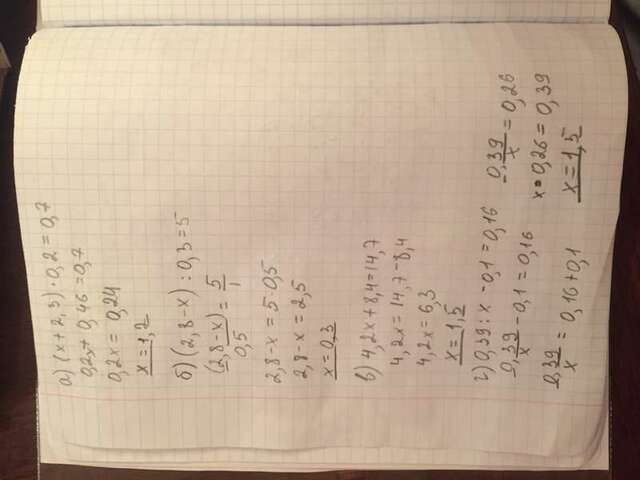 а) (x + 2,3) · 0,2 = 0,7
0,2x + 0,46 = 0,7
0,2x = 0,24
x = 1,2
б) (2,8 - x) : 0,3 = 5
(2,8 - x)/0,5 = 5/1
2,8 - x = 5 · 0,5
2,8 - x = 2,5
x = 0,3
в) 4,2x + 8,4 = 14,7
4,2x = 14,7 - 8,4
4,2x = 6,3
x = 1,5
г) 0,39 : x - 0,1 = 0,16
0,39/x - 0,1 = 0,16
0,39/x = 0,16 + 0,1
0,39/x = 0,26
x · 0,26 = 0,39
x = 1,5